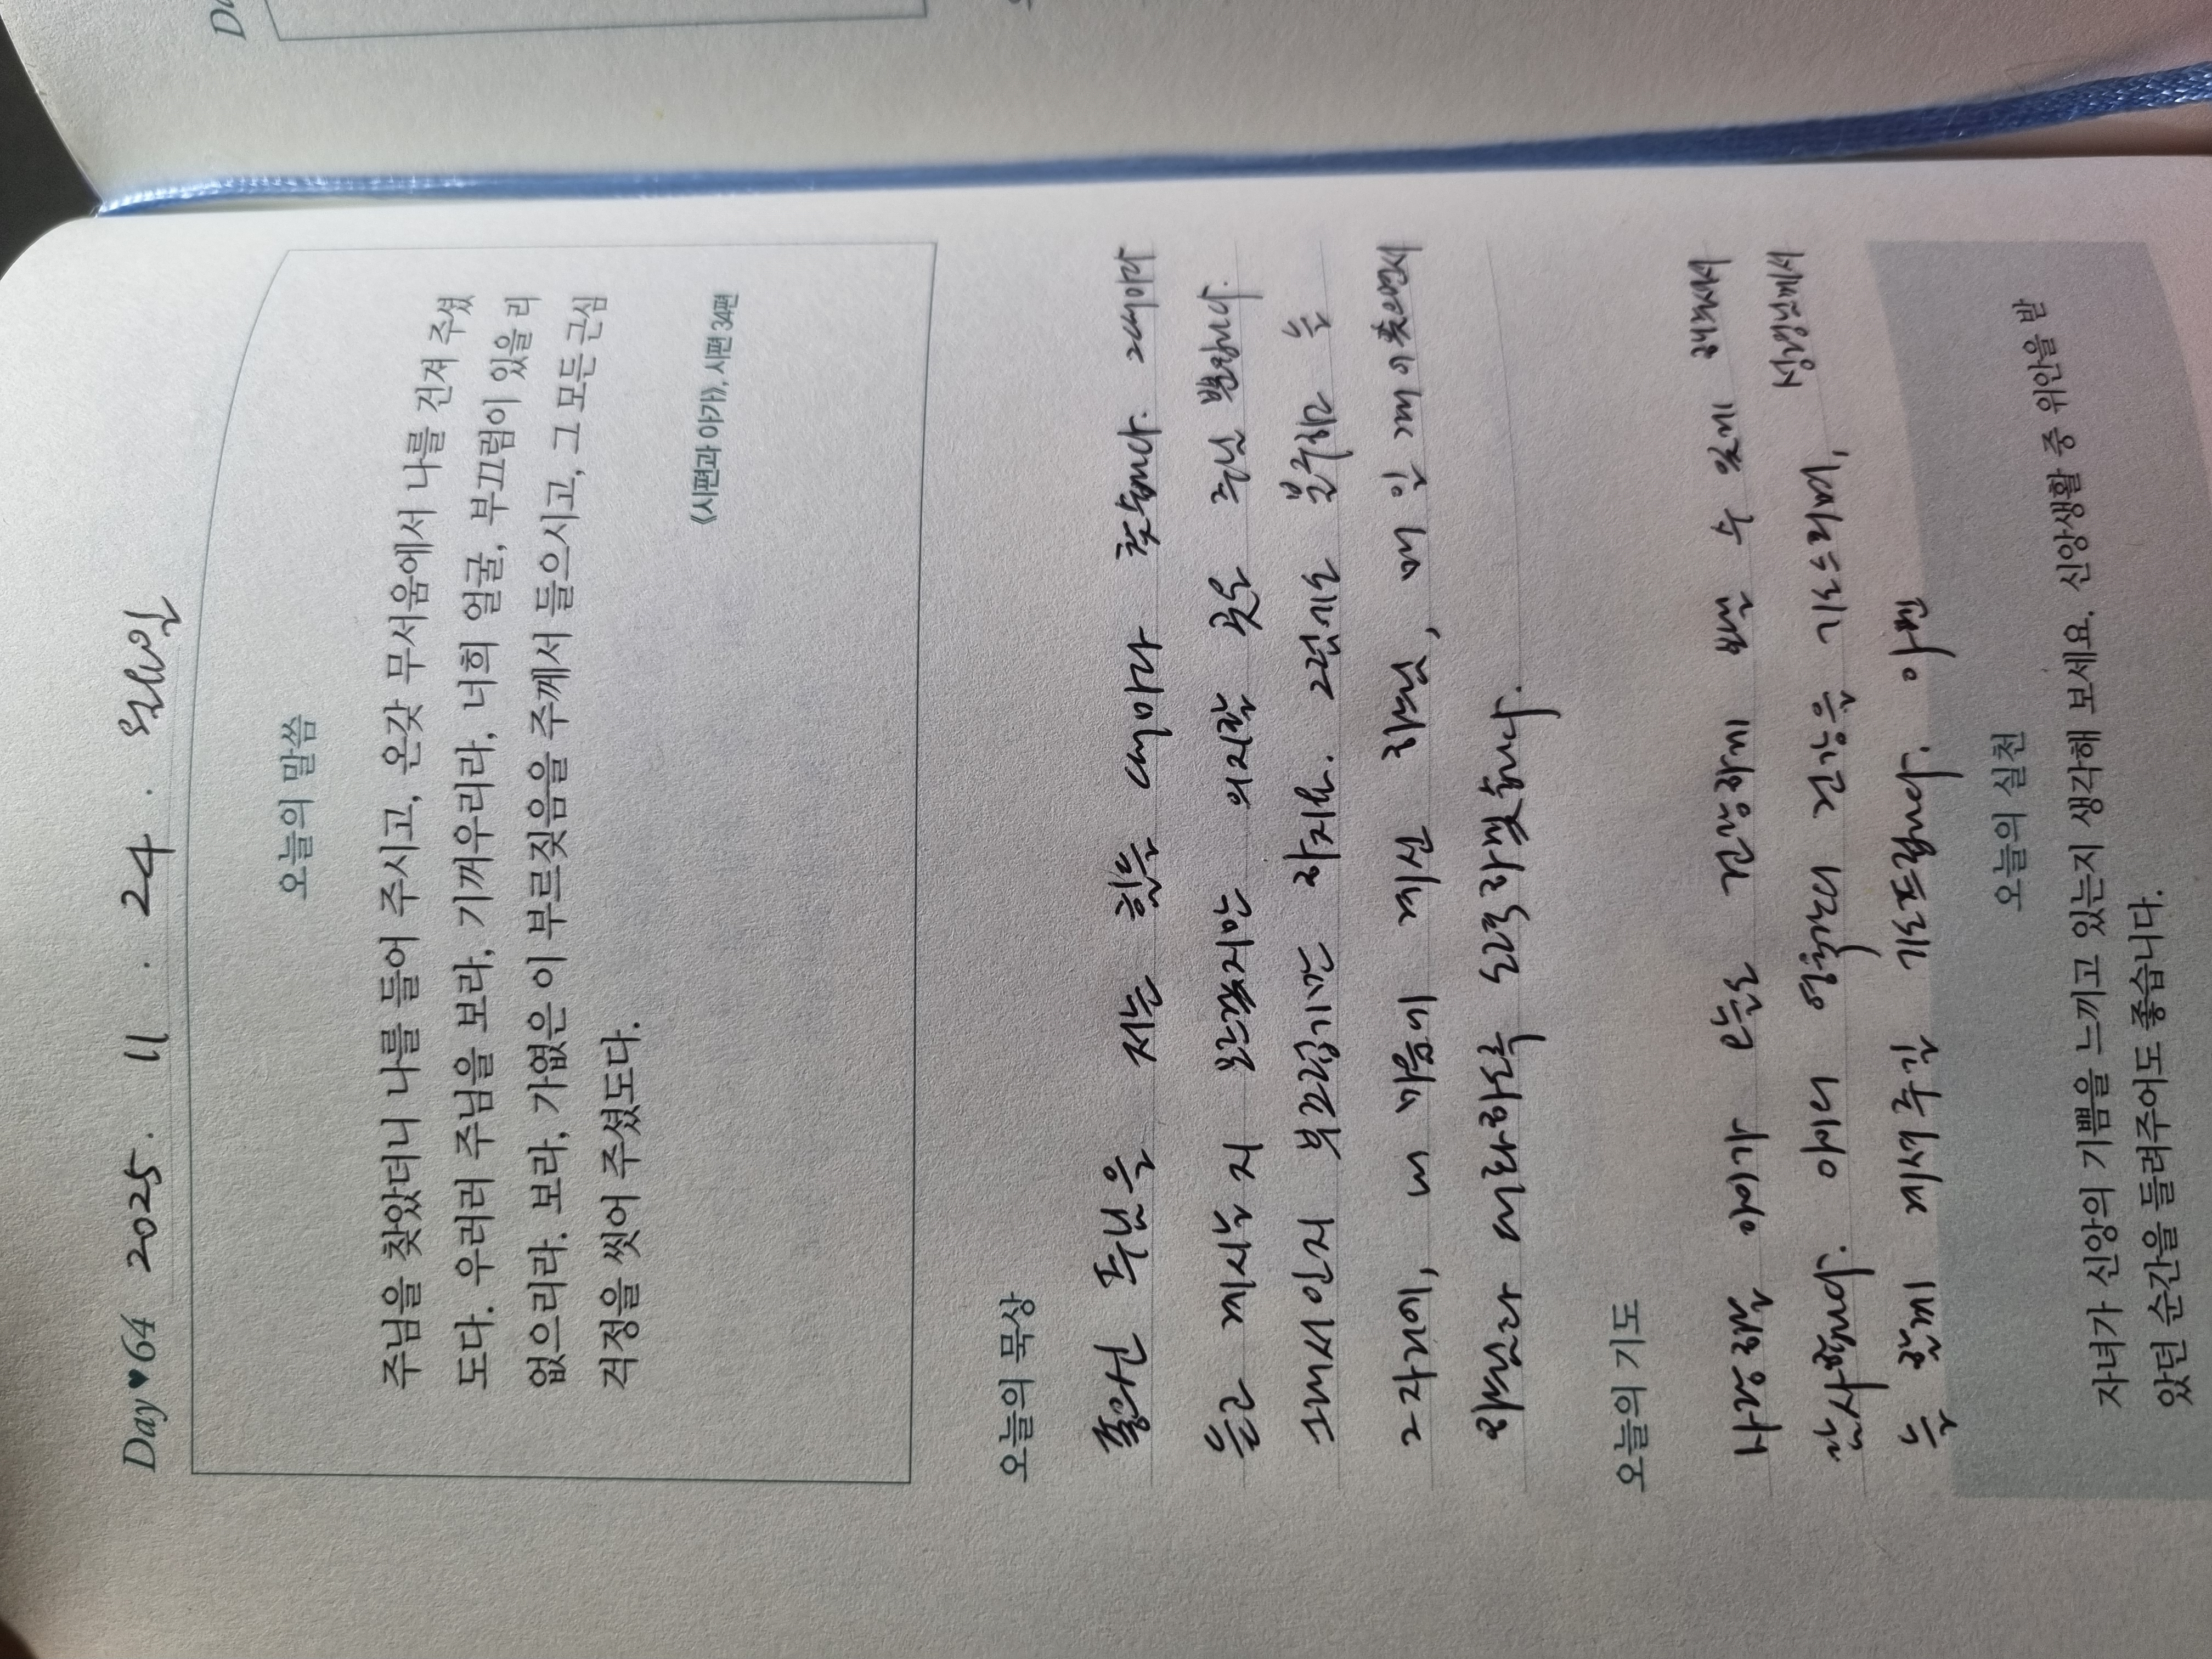 Day♥64 2025. 11. 24. 월요일
오늘의 말씀
주님을 찾았더니 나를 들어 주시고, 온갖 무서움에서 나를 건져 주셨
도다. 우러러 주님을 보라, 기꺼우리라, 너희 얼굴, 부끄럼이 있을 리
없으리라. 보라, 가엾은 이 부르짖음을 주께서 들으시고, 그 모든 근심
걱정을 씻어 주셨도다.
《시편과 아가》, 시편 34편
오늘의 묵상
좋으신 주님을 저는 힘들 때마다 찾습니다. 그때마다
늘 계시는지 모르겠지만 의지할 곳은 주님 뿐입니다.
그래서인지 부끄럽기만 하지요. 그럼에도 불구하고 늘
그자리에, 내 마음에 계신 하느님, 매 일 매 이
하느님다 바라하도록 노력하겠습니다.
오늘의 기도
사랑하올 아이가 오늘도 건강하게 벨 수 있게 해주셔서
감사합니다. 아버니 어머니 건강을 기도드리며, 성령님께서
늘 함께 계셔주길 기도드립니다. 아멘
오늘의 실천
자녀가 신앙의 기쁨을 느끼고 있는지 생각해 보세요. 신앙생활 중 위안을 받
았던 순간을 들려주어도 좋습니다.